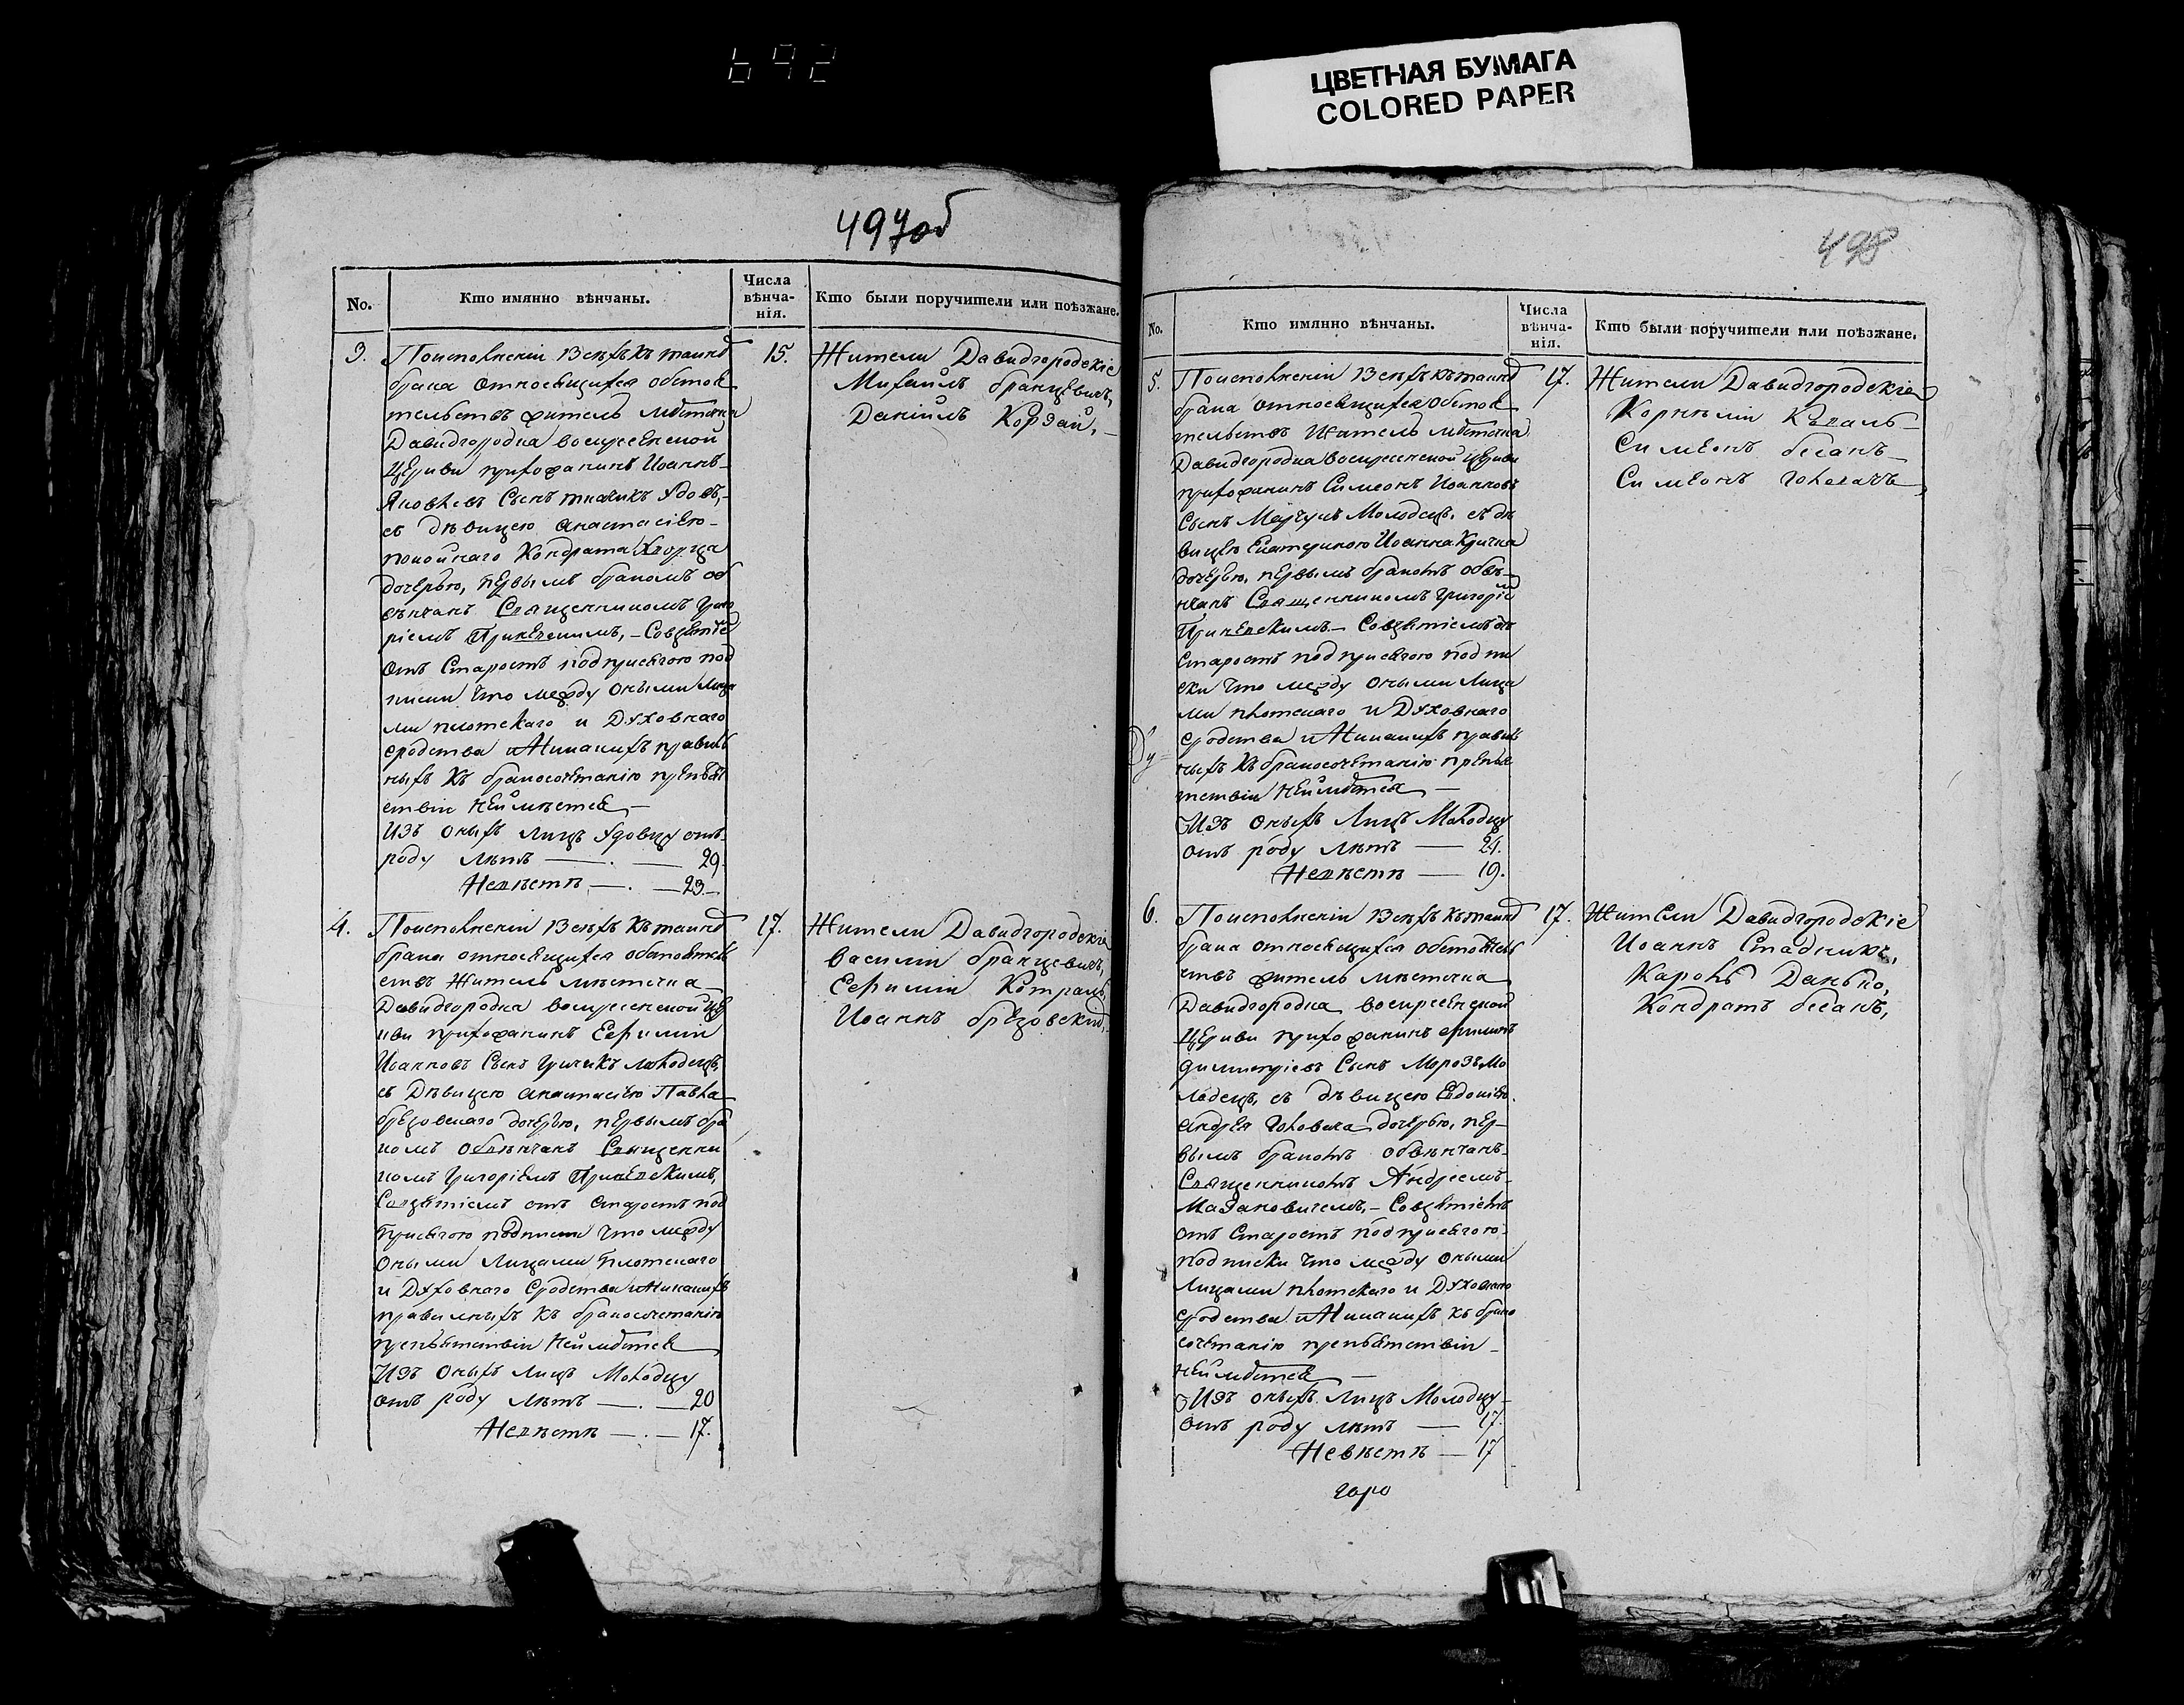 692
ЦВЕТНАЯ БУМАГА
COLORED PAPER
497об
No.
Кто имянно вѣнчаны.
Числа вѣнча-нія.
Кто были поручители или поѣзжане.
3.
По исполненіи всѣхъ къ таинст
брака относящихся обстоя
тельствъ житель мѣстечка
Давидгородка воскресенской
церкви прихожанинъ Иоаннъ
Яковлевъ Сынъ Удовѣ,
съ дѣвицею анастасіею
покойнаго Кондрата Хворца
дочерью, первымъ бракомъ об
вѣнчанъ Священникомъ Григо
ріемъ
отъ Старостъ подъ присягою под
писки что между оными Лица
ми плотскаго и Духовнаго
сродства и Никакихъ правиль
ныхъ къ бракосочетанію препят
ствіи неимѣется
Изъ оныхъ лицъ Удовцу отъ
роду лѣтъ — 29.
Невѣстѣ — 23.
15.
Жители Давидгородскіе
Михаилъ бранцевичъ,
Даніилъ Корзай,
4.
По исполненіи всѣхъ къ таинст
брака относящихся обстоятель
ствъ Житель мѣстечка
Давидгородка воскресенской Це
ркви прихожанинъ Ефимій
Иоанновъ Сынъ Гричикъ молодецъ,
съ Дѣвицею анастасіею Павла
брезовскаго дочерью, первымъ бра
комъ обвѣнчанъ Священни
комъ Григоріемъ
отъ Старостъ под
присягою подписки что между
оными Лицами плотскаго
и Духовнаго Сродства и Никакихъ
правилныхъ къ бракосочетанію
препятствіи неимѣется
Изъ оныхъ лицъ Молодцу
отъ роду лѣтъ — 20
Невѣстѣ — 17.
17.
Жители Давидгородскіе
василій бранцевичъ,
Ефимій
Иоаннъ брезовскій,
498
No.
Кто имянно вѣнчаны.
Числа вѣнча-нія.
Кто были поручители или поѣзжане.
5.
По исполненіи всѣхъ къ таинст
брака относящихся обстоя
тельствъ Житель мѣстечка
Давидгородка воскресенской церкви
прихожанинъ Симеонъ Иоанновъ
Сынъ Молодецъ, съ дѣ
вицею Екатериною Иоанна Кричка
дочерью, первымъ бракомъ обвѣ
нчанъ Священникомъ Григоріемъ
Старостъ подъ присягою подпи
ски что между оными Лица
ми плотскаго и Духовнаго
сродства и Никакихъ правиль
ныхъ къ бракосочетанію препя
тствіи неимѣется
Изъ оныхъ Лицъ Молодцу
отъ роду лѣтъ — 21.
Невѣстѣ — 19.
17.
Жители Давидгородскіе
Корнилій Коваль
Симеонъ бесанъ
Симеонъ
6.
По исполненіи всѣхъ къ таинст
брака относящихся обстоятель
ствъ житель мѣстечка
Давидгородка воскресенской
Церкви прихожанинъ
димитріевъ Сынъ Морозъ Мо
лодецъ, съ дѣвицею Евдокіею
андрея дочерью, пер
вымъ бракомъ обвѣнчанъ
Священникомъ Андреемъ
отъ Старостъ подъ присягою
подписки что между оными
Лицами плотскаго и Духовнаго
сродства и Никакихъ къ брако
сочетанію препятствіи
неимѣется
Изъ оныхъ Лицъ Молодцу
отъ роду лѣтъ — 17.
Невѣстѣ — 17
17.
Жители Давидгородскіе
Иоаннъ Стадникъ,
Данько,
Кондратъ бесанъ,